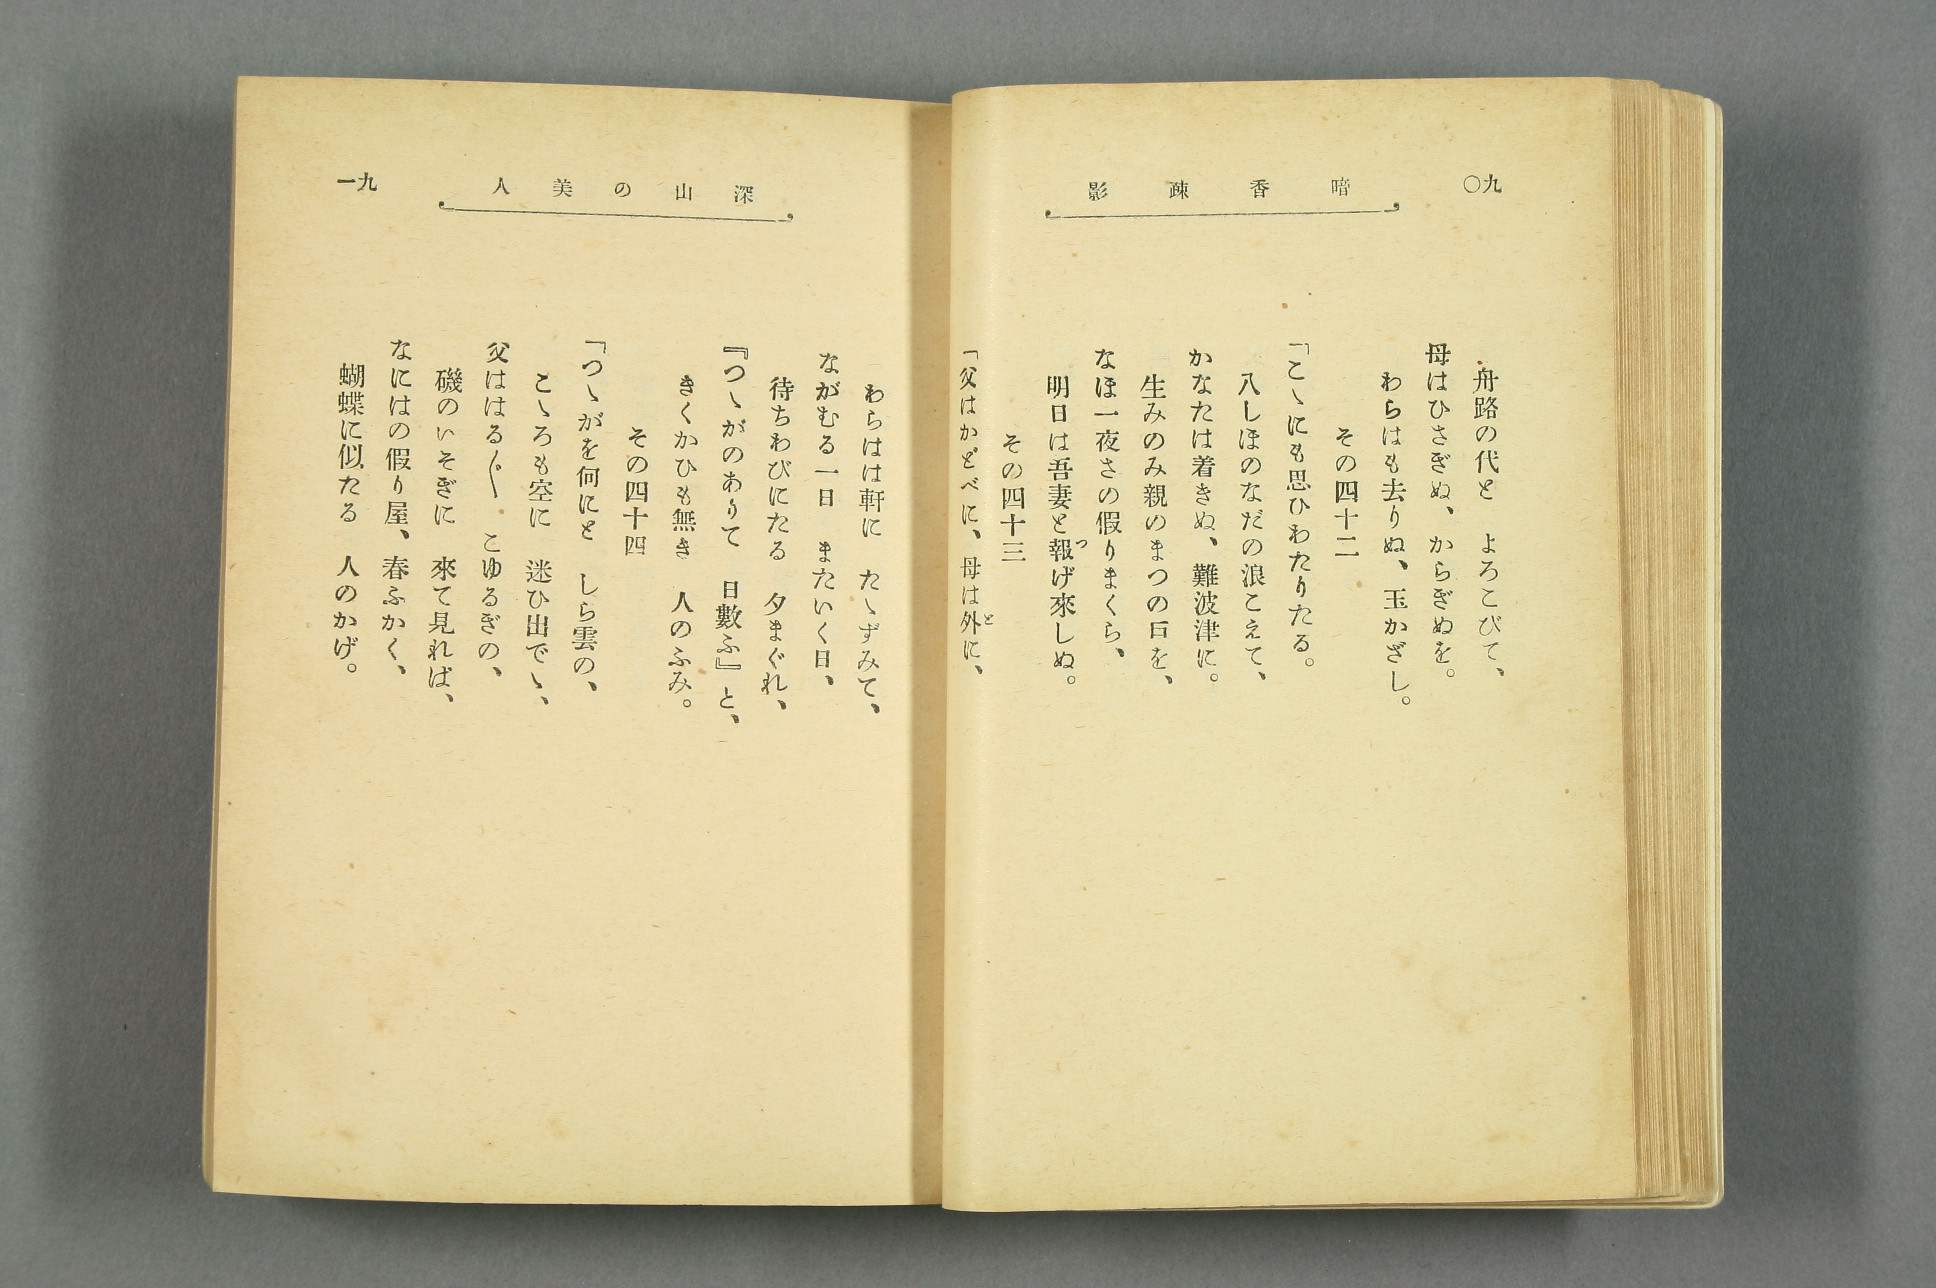 九〇
暗香疎影
舟路の代と　よろこびて、
母はひさぎぬ、からぎぬを。
わらはも去りぬ、玉かざし。
その四十二
「こゝにも思ひわたりたる。
八しほのなだの浪こえて、
かなたは着きぬ、難波津に。
生みのみ親のまつの戸を、
なほ一夜さの假りまくら、
明日は吾妻と報げ來しぬ。
つ
その四十三
「父はかどべに、母は外に、
と
深山の美人
九一
わらはは軒に　たゝずみて、
ながむる一日　またいく日、
待ちわびにたる　夕まぐれ、
『つゝがのありて　日數ふ』と、
きくかひも無き　人のふみ。
その四十四
「つゝがを何にと　しら雲の、
こゝろも空に　迷ひ出でゝ、
父ははる〴〵　こゆるぎの、
磯のいそぎに　來て見れば、
なにはの假り屋、春ふかく、
蝴蝶に似たる　人のかげ。